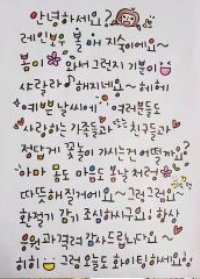 안녕하세요?
레인보우 볼 애 지숙이에요~
봄이 와서 그런지 기분이
샤랄라♪해지네요~ 헤헤
예쁜 날씨에 여러분들도
사랑하는 가족들과 또는 친구들과
정답게 꽃놀이 가시는건 어떨까요?
아마 몸도 마음도 봄날처럼
따뜻해질거에요~ 그럼그럼~
환절기 감기 조심하시구요! 항상
응원과 격려 감사드립니다요~
히히 그럼 오늘도 화이팅하세요!